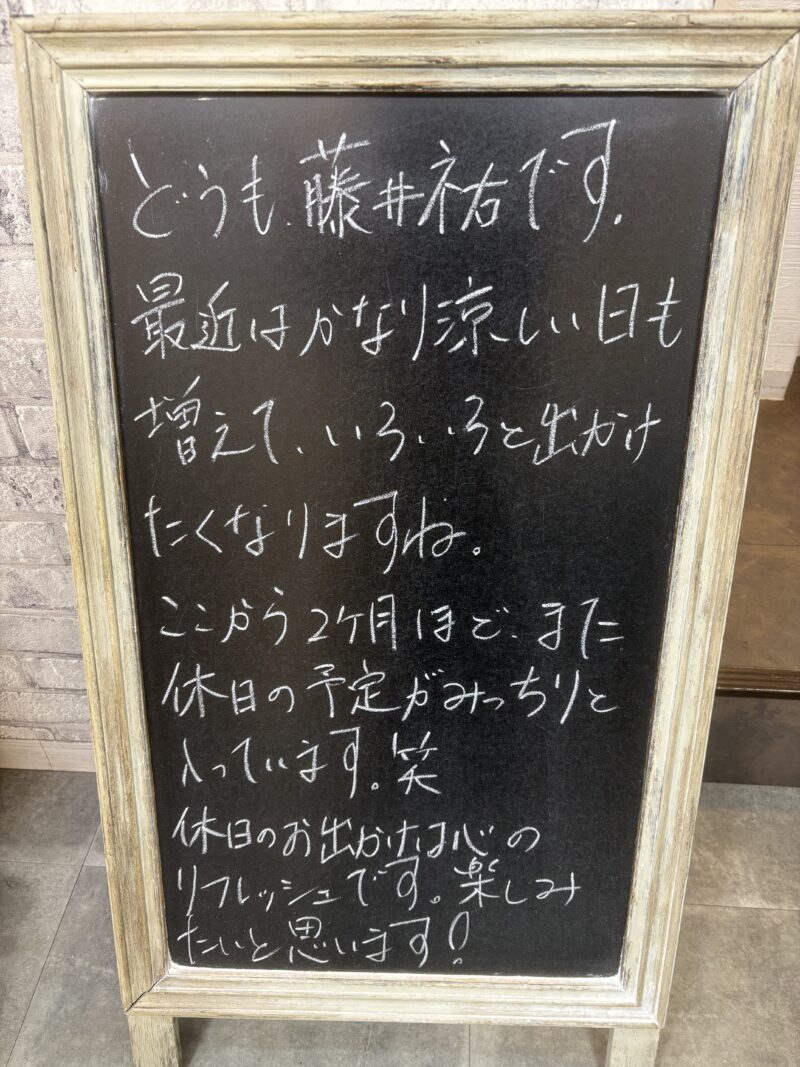 どうも、藤井祐です。
最近はかなり涼しい日も
増えて、いろいろと出かけ
たくなりますね。
ここから2ケ月ほど、また
休日の予定がみっちりと
入っています。笑
休日のお出かけは心の
リフレッシュです。楽しみ
たいと思います!